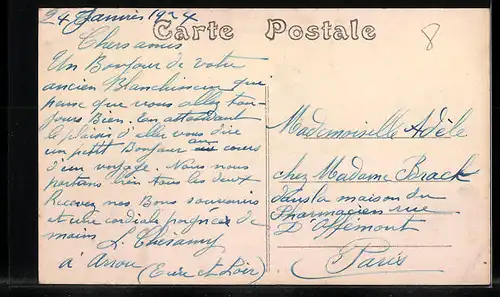 24 Janvier 1924
Carte Postale
8
Chers amis
Un Bonjour de votre
ancien Blanchisseur que
pense que vous allez tou-
jours Bien. En attendant
le plaisir d'aller vous dire
un petit Bonjour au cours
d'un voyage. Nous nous
portons bien tous les deux
Recevez nos Bons souvenirs
et une cordiale poignée de
mains
à Arrou (Eure et Loir)
Mademoiselle Adèle
chez Madame Brack
dans la maison du
Pharmacien rue
D'Offemont
Paris